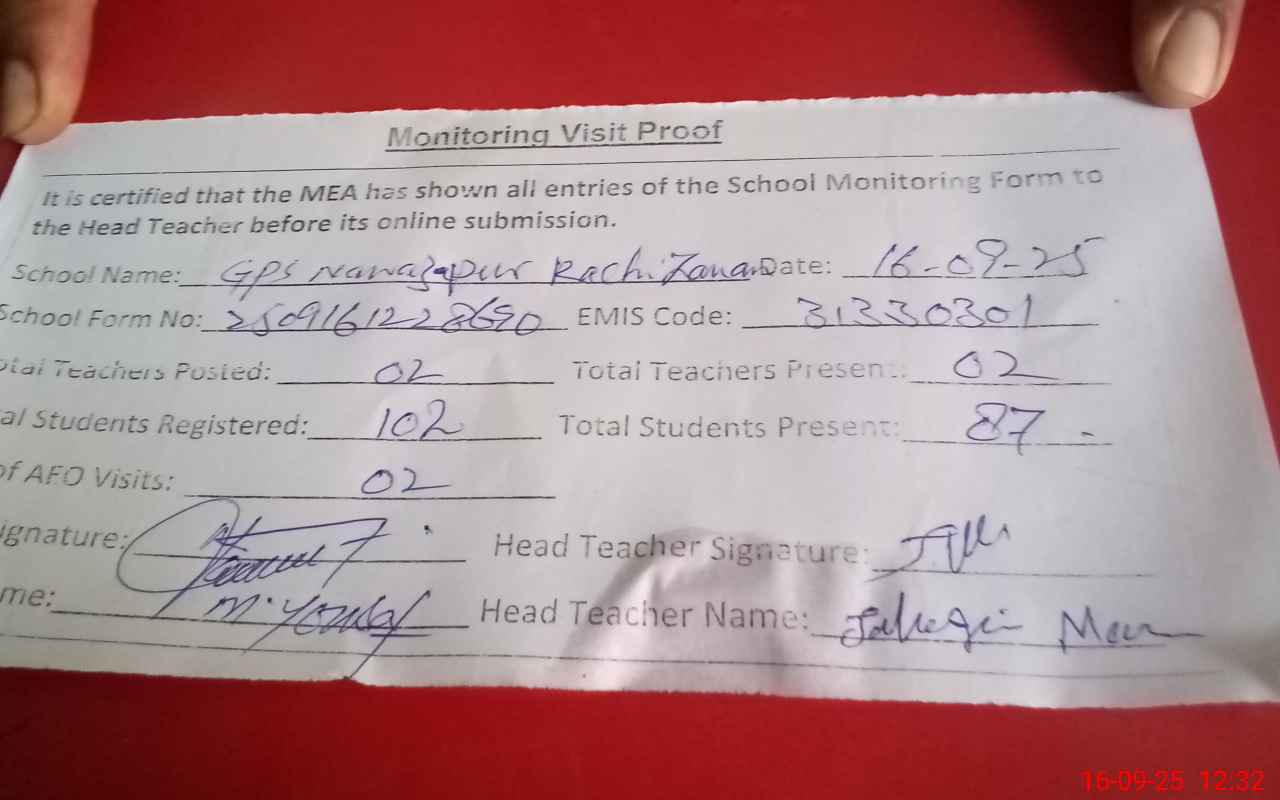 Monitoring Visit Proof
It is certified that the MEA has shown all entries of the School Monitoring Form to
the Head Teacher before its online submission.
School Name: GPS Nawazapur Kachi Zaman Date: 16-09-25
School Form No: 2509161228690 EMIS Code: 31330301
otal Teachers Posted: 02 Total Teachers Present: 02
al Students Registered: 102 Total Students Present: 87
of AEO Visits: 02
ignature: Head Teacher Signature:
me: M. Yousaf Head Teacher Name:
16-09-25 12:32